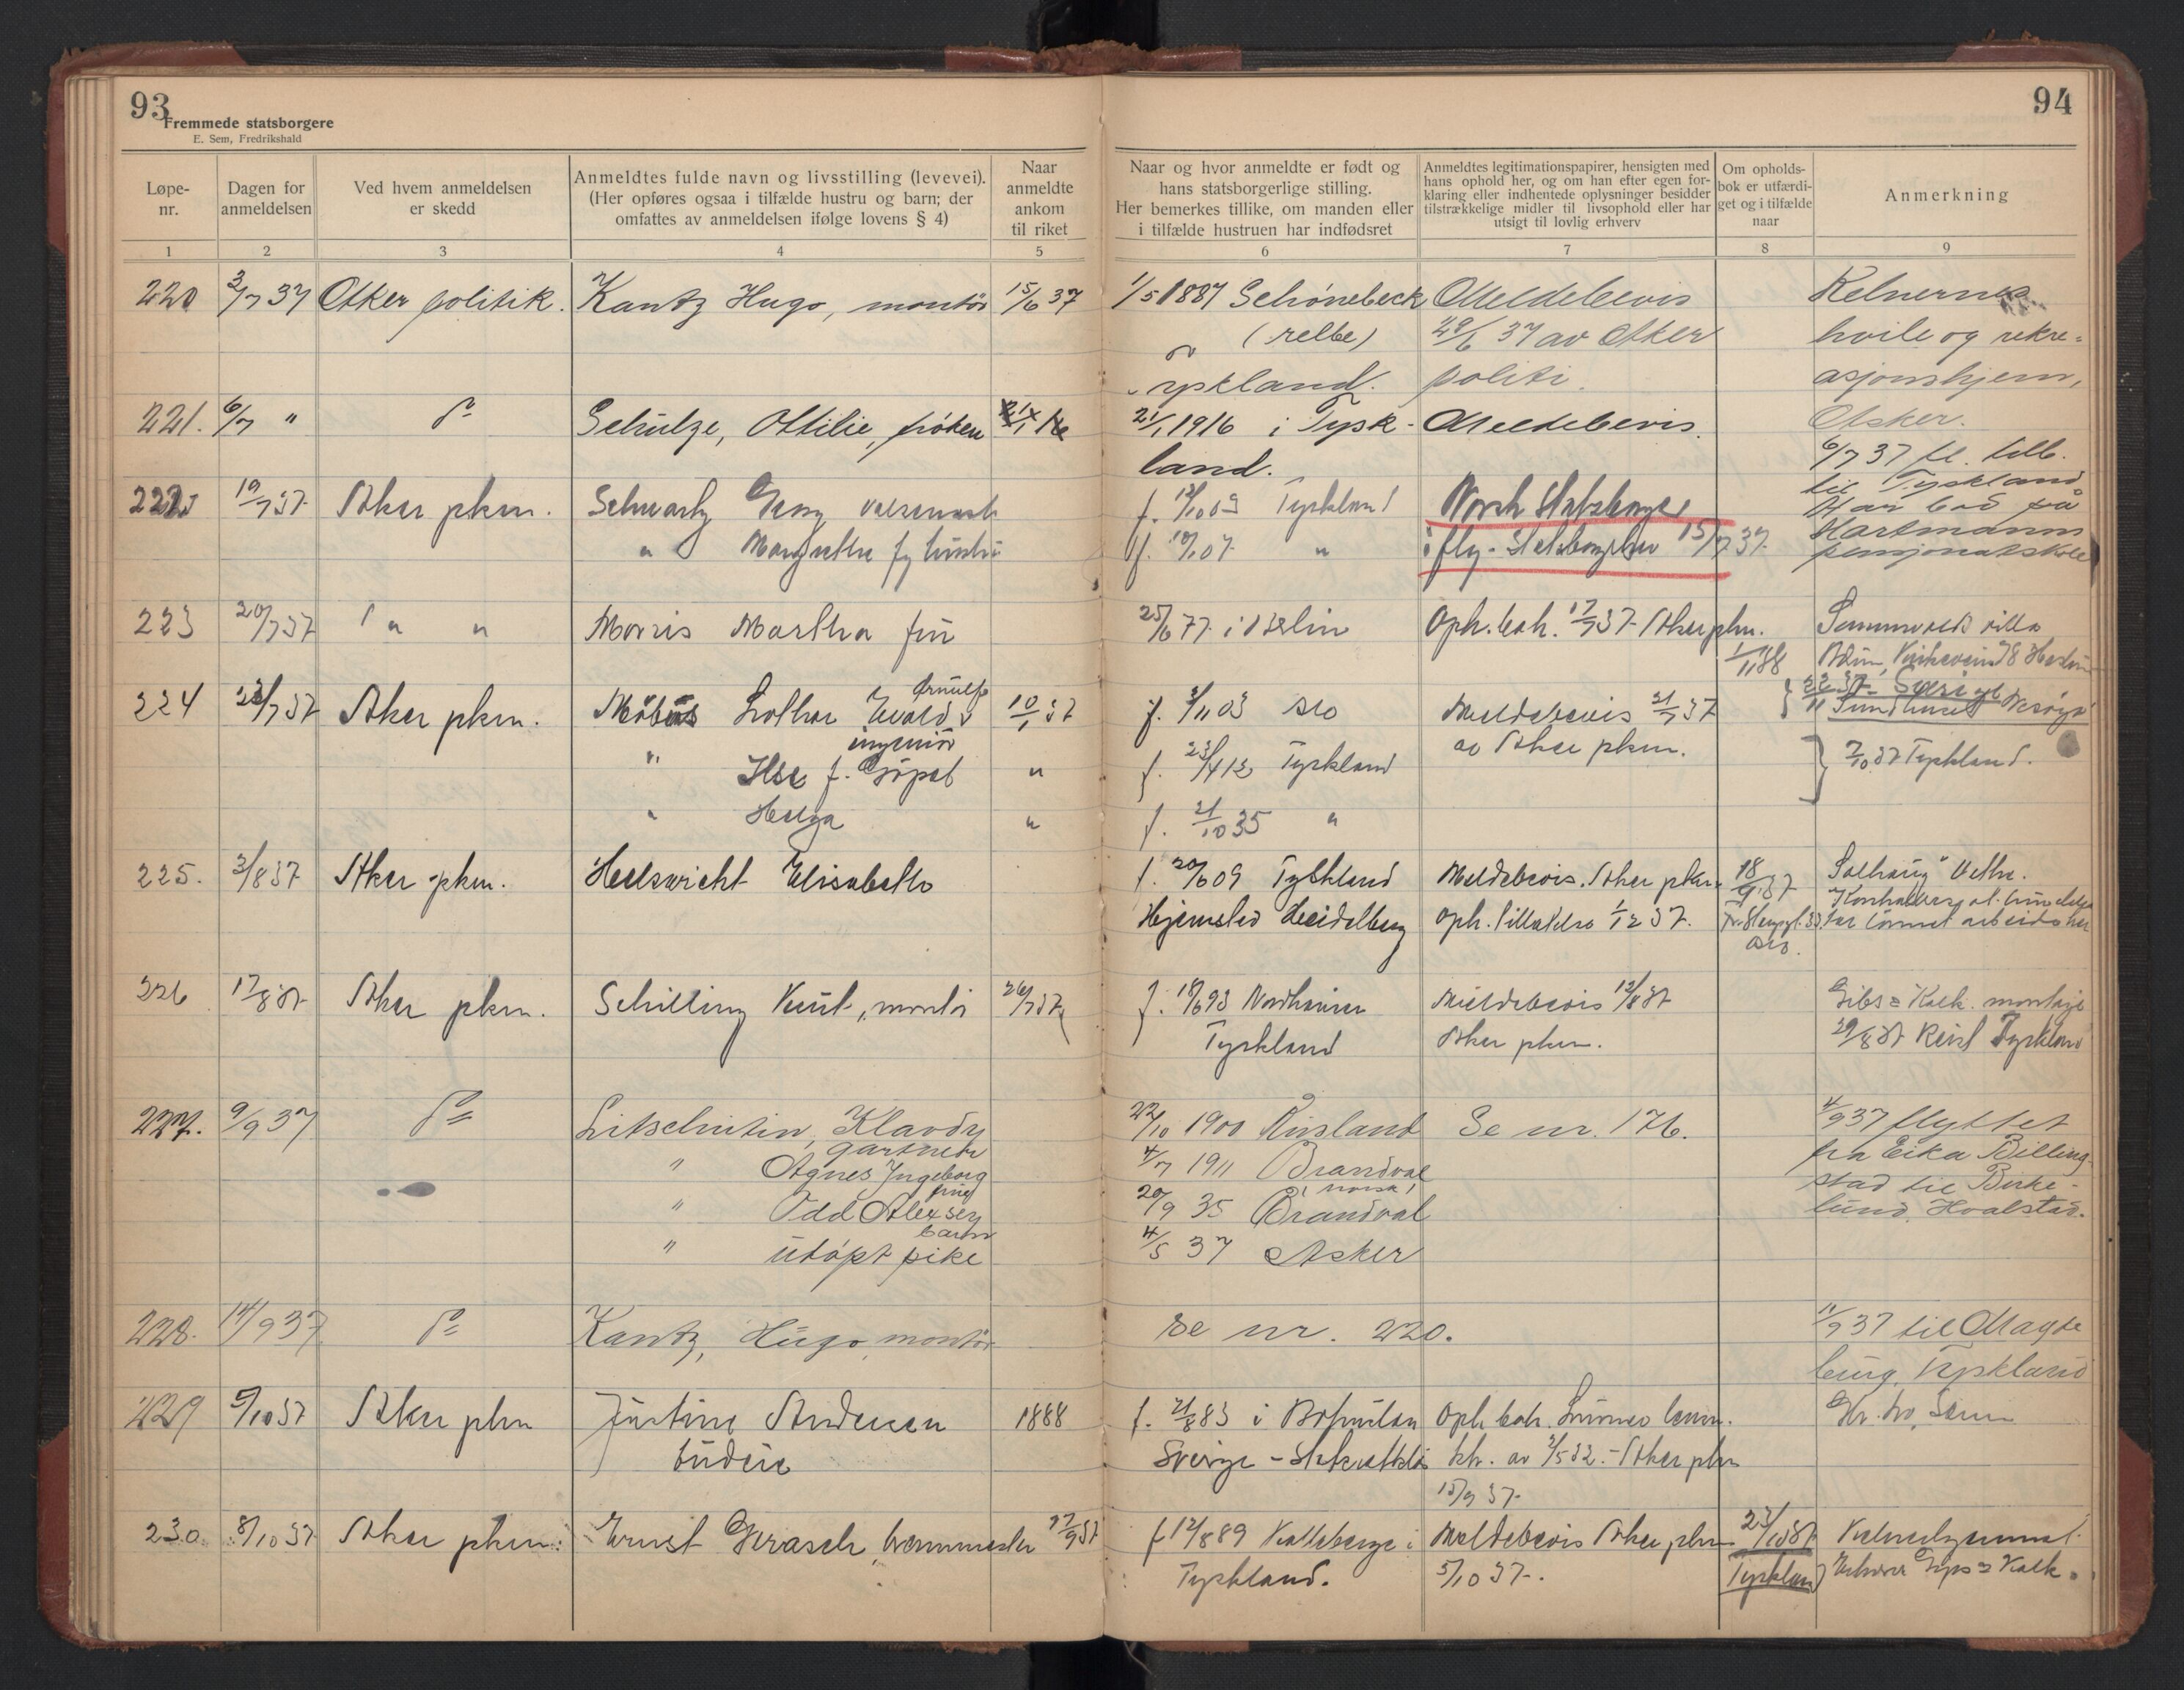 93
Fremmede statsborgere
E. Sem, Fredrikshald
94
Løpe-
nr.
Dagen for
anmeldelsen
Ved hvem anmeldelsen
er skedd
Anmeldtes fulde navn og livsstilling (levevei).
(Her opføres ogsaa i tilfælde hustru og barn; der
omfattes av anmeldelsen ifølge lovens § 4)
Naar
anmeldte
ankom
til riket
Naar og hvor anmeldte er født og
hans statsborgerlige stilling.
Her bemerkes tillike, om manden eller
i tilfælde hustruen har indfødsret
Anmeldtes legitimationspapirer, hensigten med
hans ophold her, og om han efter egen for-
klaring eller indhentede oplysninger besidder
tilstrækkelige midler til livsophold eller har
utsigt til lovlig erhverv
Om opholds-
bok er utfærdi-
get og i tilfælde
naar
Anmerkning
1 2 3 4 5 6 7 8 9
220 2/7 37 Asker politik. Kantz Hugo, montør 15/6 37 1/5 1887 Schönebeck Meldebevis Kelnernes
(Elbe) 29/6 37 av Asker hvile og rekre-
Tyskland. politi. asjonshjem,
221. 6/7 " do Schulze, Ottilie, frøken 21/1 1916 i Tysk- Meldebevis. Asker.
land. 6/7 37 til
til Tyskland
222 19/7 37 Asker pkm. Schwartz Georg f. 12/10 09 Tyskland Norsk Statsborger Har bod på
" Margrethe f. 10/1 07 " i flg. Statsborgerbrev 15/7 37. Hartmanns
pensjonatskole
223 20/7 37 " " Morris Martha fru 25/6 77 i Berlin Oph.bok. 17/7 37 Asker pkm. villa
1/11 38
224 23/7 37 Asker pkm. Möbus Lothar Ewald Arnulf 10/1 37 f. 3/11 03 Meldebevis 21/7 37
ingeniør av Asker pkm.
" Ilse f. Göpel " f. 23/4 12 Tyskland 7/10 37 Tyskland.
" Helga " f. 21/10 35 "
225. 3/8 37 Asker pkm. Helswicht Elisabeth f. 20/6 09 Tyskland Meldebevis. Asker pkm. 18/9 37 "Solhaug" Vettre.
Hjemsted Heidelberg oph. tillatelse 1/12 37. lønnet arbeide her
226 17/8 37 Asker pkm. Schilling Kurt, montør 26/7 37 f. 18/6 93 Nordhausen Meldebevis 12/8 37 Gibs & Kalk. montasje
Tyskland Asker pkm. 29/8 37 Reist Tyskland
227. 9/9 37 do Litschutin, Klavdy 22/10 1900 Rusland Se nr. 176. 4/9 37 flyttet
gartner fra Eika Billing-
" Agnes Ingeborg 4/7 1911 Brandval stad til Birke-
frue (norsk) lund, Hvalstad.
" Odd Alexsey 20/9 35 Brandval
barn
" udøpt pike 4/5 37 Asker
228. 14/9 37 do Kantz, Hugo, montør Se nr. 220. 11/9 37 til Magde
burg, Tyskland
229 5/10 37 Asker pkm Justine Andersen 1888 f. 21/8 83 i Bohuslän Oph bok.
budeie Sverige - av 2/5 32. - Asker pkm
15/9 37.
230. 8/10 37 Asker pkm. Ernst Gerasch, brennmester 27/9 37 f 12/8 89 i Meldebevis Asker pkm 23/10 37
Tyskland. 5/10 37. Tyskland Gips & Kalk.